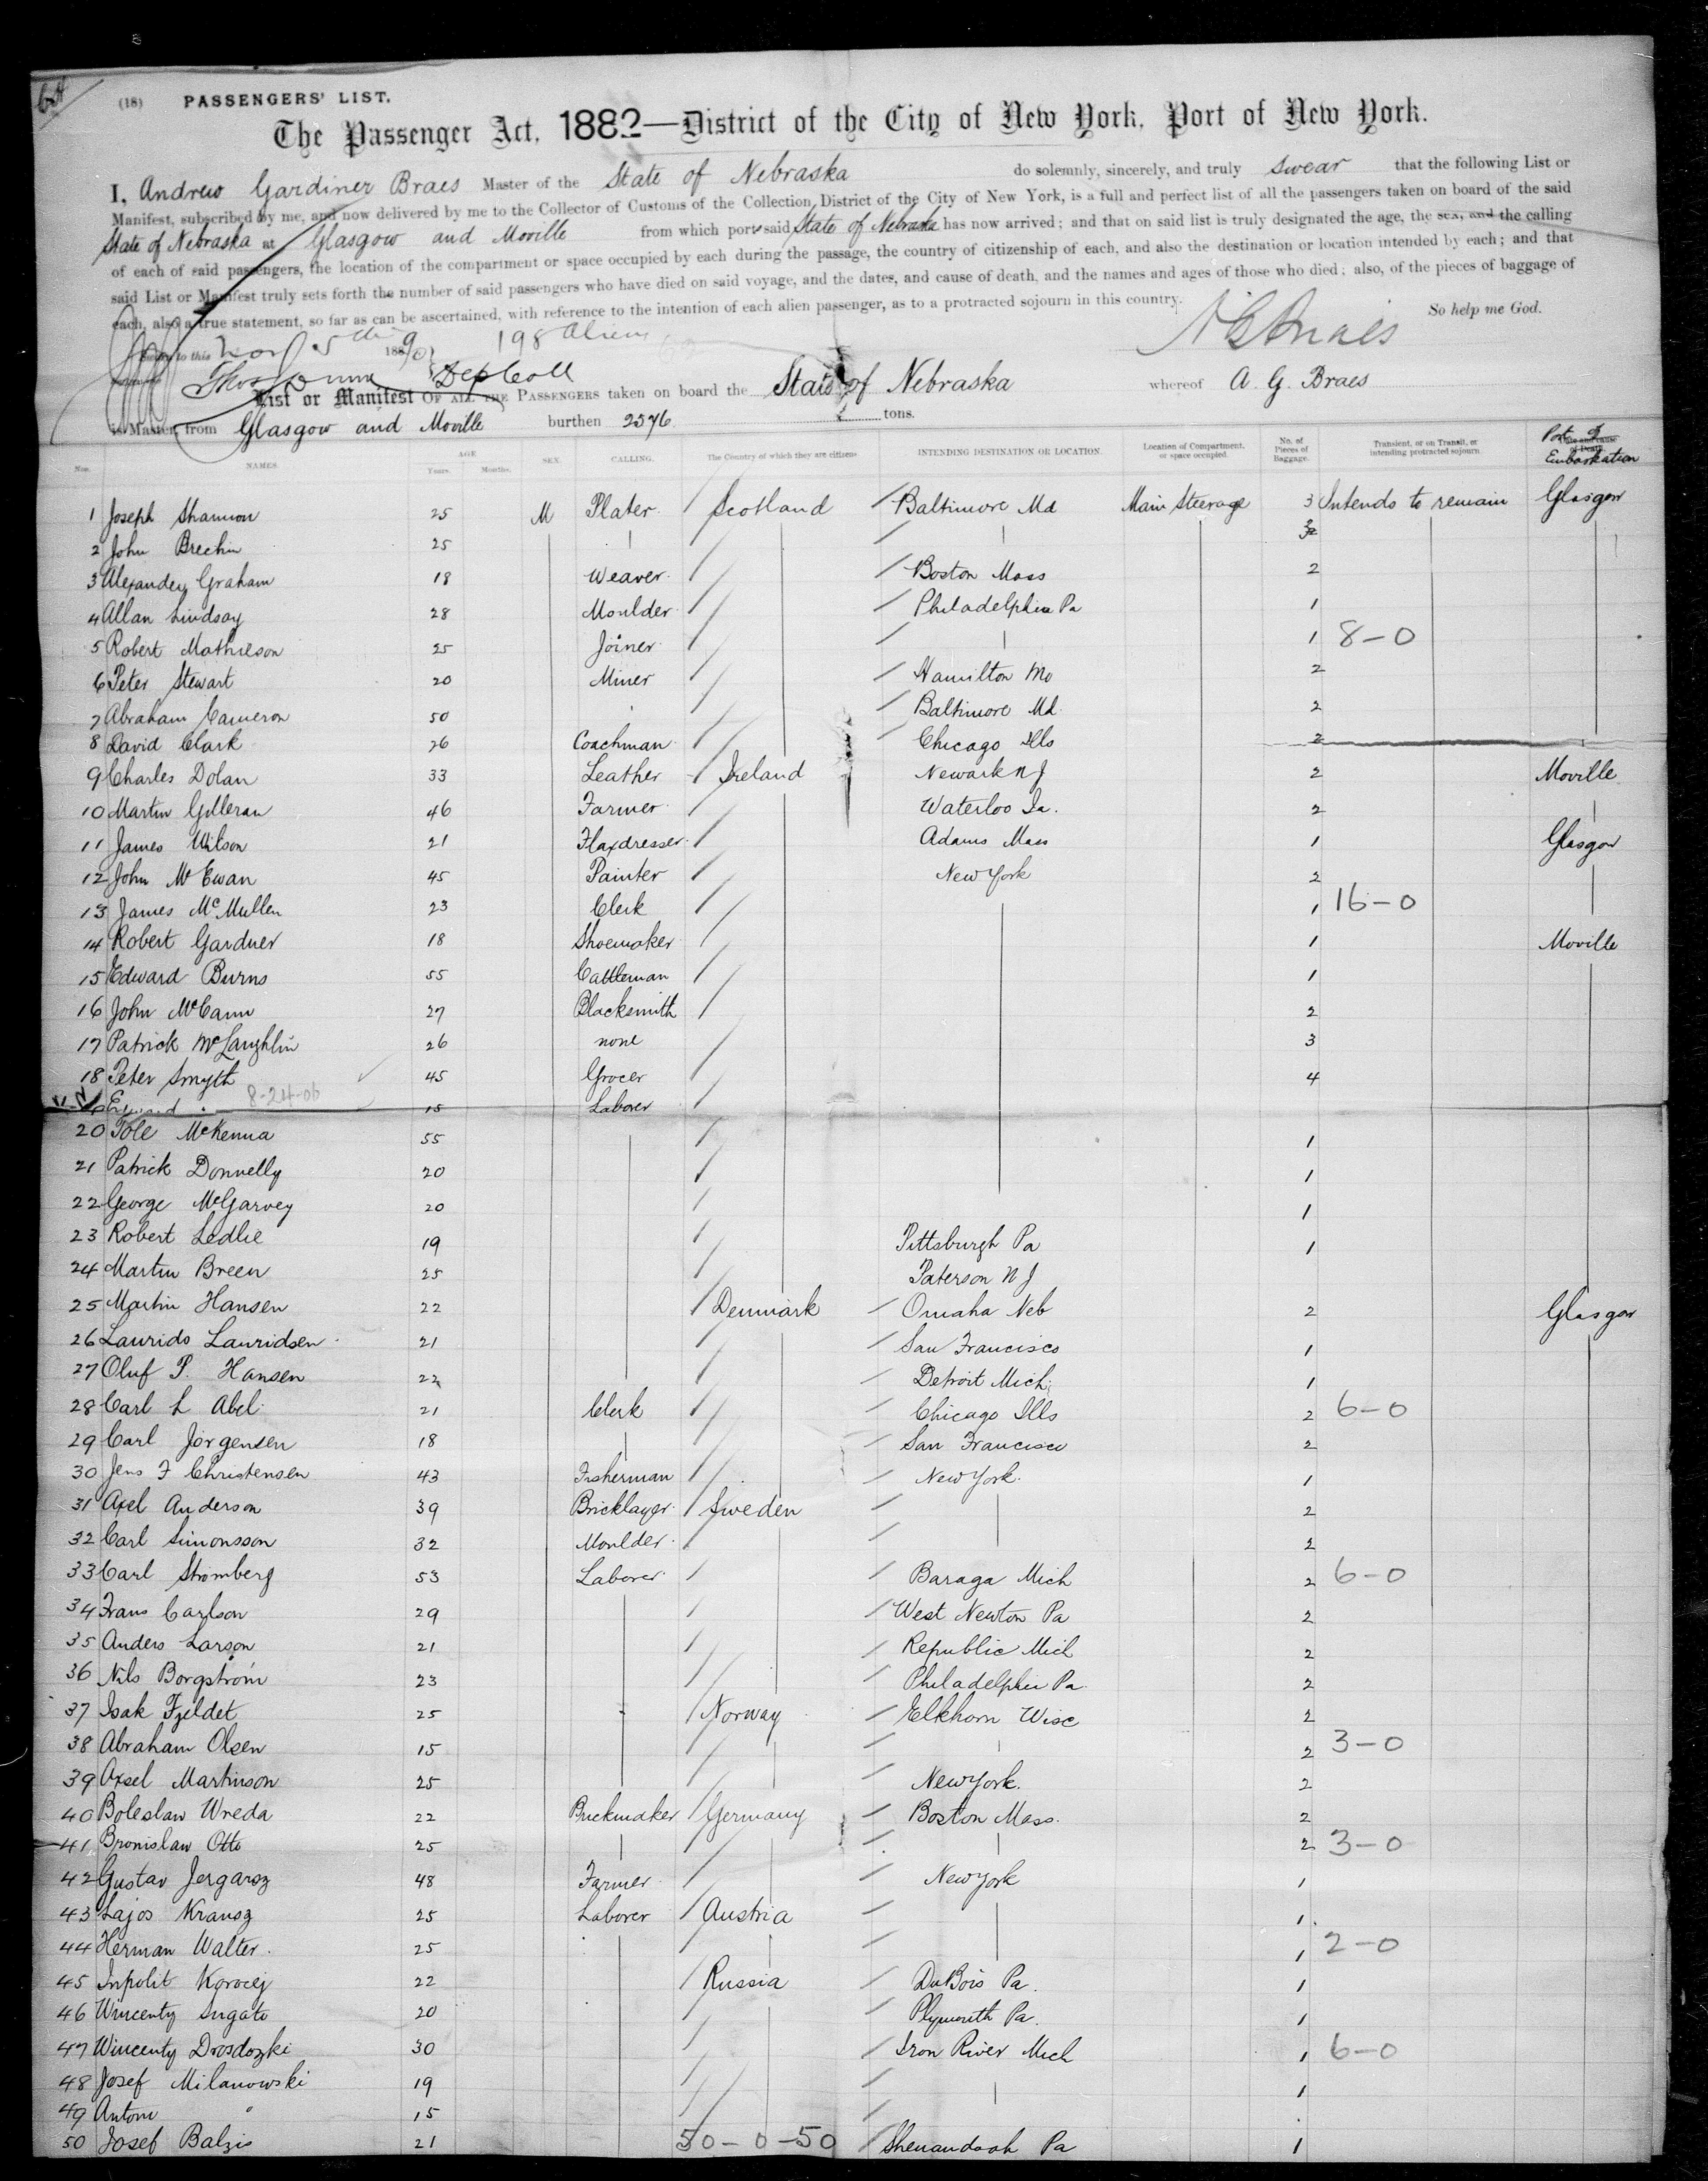 (18) PASSENGERS' LIST.
The Passenger Act, 1882—District of the City of New York, Port of New York.
I, Andrew Gardiner Braes Master of the State of Nebraska do solemnly, sincerely, and truly swear that the following List or
Manifest, subscribed by me, and now delivered by me to the Collector of Customs of the Collection District of the City of New York, is a full and perfect list of all the passengers taken on board of the said
State of Nebraska at Glasgow and Moville from which port said State of Nebraska has now arrived; and that on said list is truly designated the age, the sex, and the calling
of each of said passengers, the location of the compartment or space occupied by each during the passage, the country of citizenship of each, and also the destination or location intended by each; and that
said List or Manifest truly sets forth the number of said passengers who have died on said voyage, and the dates, and cause of death, and the names and ages of those who died; also, of the pieces of baggage of
each, also a true statement, so far as can be ascertained, with reference to the intention of each alien passenger, as to a protracted sojourn in this country. So help me God.
to this 5th 188 198 Aliens A G Braes
Thos Dunn Dep Coll
List or Manifest OF ALL THE PASSENGERS taken on board the State of Nebraska whereof A. G. Braes
is Master, from Glasgow and Moville burthen 2576 tons.
Nos. NAMES. AGE Years. Months. SEX. CALLING. The Country of which they are citizens INTENDING DESTINATION OR LOCATION. Location of Compartment, or space occupied. No. of Pieces of Baggage. Transient, or on Transit, or intending protracted sojourn. Port of Embarkation
1 Joseph Shannon 25 M Plater Scotland Baltimore Md Main Steerage 3 Intends to remain Glasgow
2 John Brechin 25
3 Alexander Graham 18 Weaver Boston Mass 2
4 Allan Lindsay 28 Moulder Philadelphia Pa 1
5 Robert Mathieson 25 Joiner 1 8-0
6 Peter Stewart 20 Miner Hamilton Mo 2
7 Abraham Cameron 50 Baltimore Md 2
8 David Clark 26 Coachman Chicago Ills 2
9 Charles Dolan 33 Leather Ireland Newark N J 2 Moville
10 Martin Gilleran 46 Farmer Waterloo Ia. 2
11 James Wilson 21 Flaxdresser Adams Mass 1 Glasgow
12 John McEwan 45 Painter New York 2
13 James McMullen 23 Clerk 1 16-0
14 Robert Gardner 18 Shoemaker 1 Moville
15 Edward Burns 55 Cattleman 1
16 John McCann 27 Blacksmith 2
17 Patrick McLaughlin 26 none 3
18 Peter Smyth 45 Grocer 4
8-24-06 15 Laborer
20 Tole McKenna 55 1
21 Patrick Donnelly 20 1
22 George McGarvey 20 1
23 Robert Ledlie 19 Pittsburgh Pa 1
24 Martin Breen 25 Paterson N J
25 Martin Hansen 22 Denmark Omaha Neb 2 Glasgow
26 Laurids Lauridsen 21 San Francisco 1
27 Oluf P. Hansen 22 Detroit Mich 1
28 Carl L Abel 21 Clerk Chicago Ills 2 6-0
29 Carl Jorgensen 18 San Francisco 2
30 Jens F Christensen 43 Fisherman New York 1
31 Axel Anderson 39 Bricklayer Sweden 2
32 Carl Simonsson 32 Moulder 2
33 Carl Stromberg 53 Laborer Baraga Mich 2 6-0
34 Frans Carlson 29 West Newton Pa 2
35 Anders Larson 21 Republic Mich 2
36 Nils Borgström 23 Philadelphia Pa 2
37 Isak Fjeldet 25 Norway Elkhorn Wisc 2
38 Abraham Olsen 15 2 3-0
39 Axel Martinson 25 New York 2
40 Boleslaw Wreda 22 Brickmaker Germany Boston Mass. 2
41 Bronislaw Otto 25 2 3-0
42 Gustav Jergarsz 48 Farmer New York 1
43 Lajos Krausz 25 Laborer Austria 1
44 Herman Walter 25 1 2-0
45 Inpolit Korocej 22 Russia DuBois Pa. 1
46 Wincenty Sugato 20 Plymouth Pa. 1
47 Wincenty Drosdozki 30 Iron River Mich 1 6-0
48 Josef Milanowski 19 1
49 Antoni " 15
50 Josef Balzis 21 50-0-50 Shenandoah Pa 1